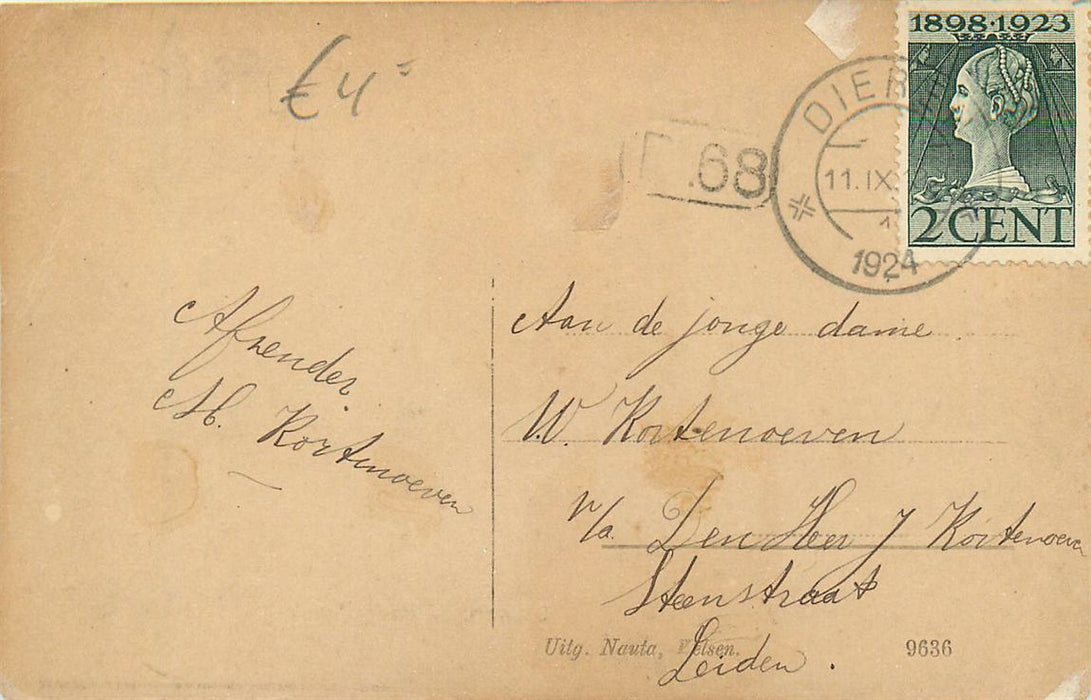 €4=
.68
DIER
11.IX
1924
1898·1923
2 CENT
Afzender
M. Kortenoeven
Aan de jonge dame
W. Kortenoeven
p/a. Den Heer J Kortenoeven
Steenstraat
Leiden.
Uitg. Nauta, Velsen.
9636